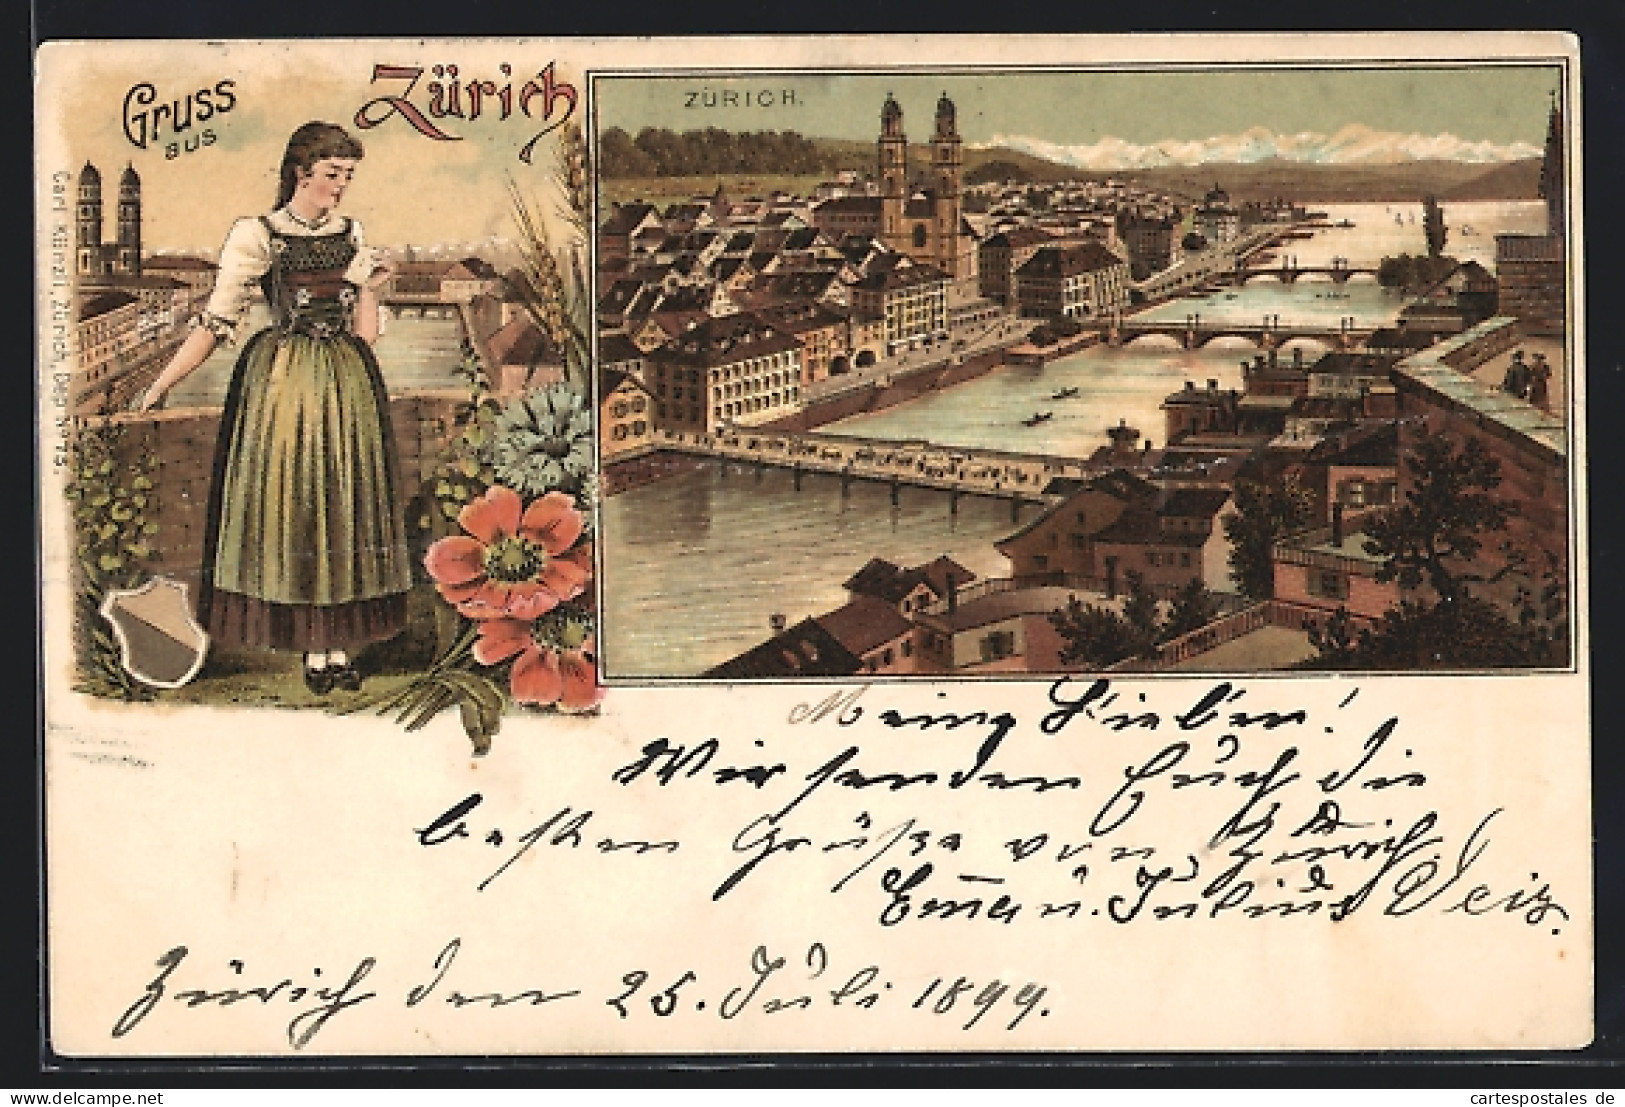 Gruss
aus
Zürich
ZÜRICH.
Carl Künzli, Zürich, Dep. No
Meine Lieben!
Wir senden Euch die
besten Grüße von Zürich.
Emma u. Julius
Zürich den 25. Juli 1899.
cartespostales.de